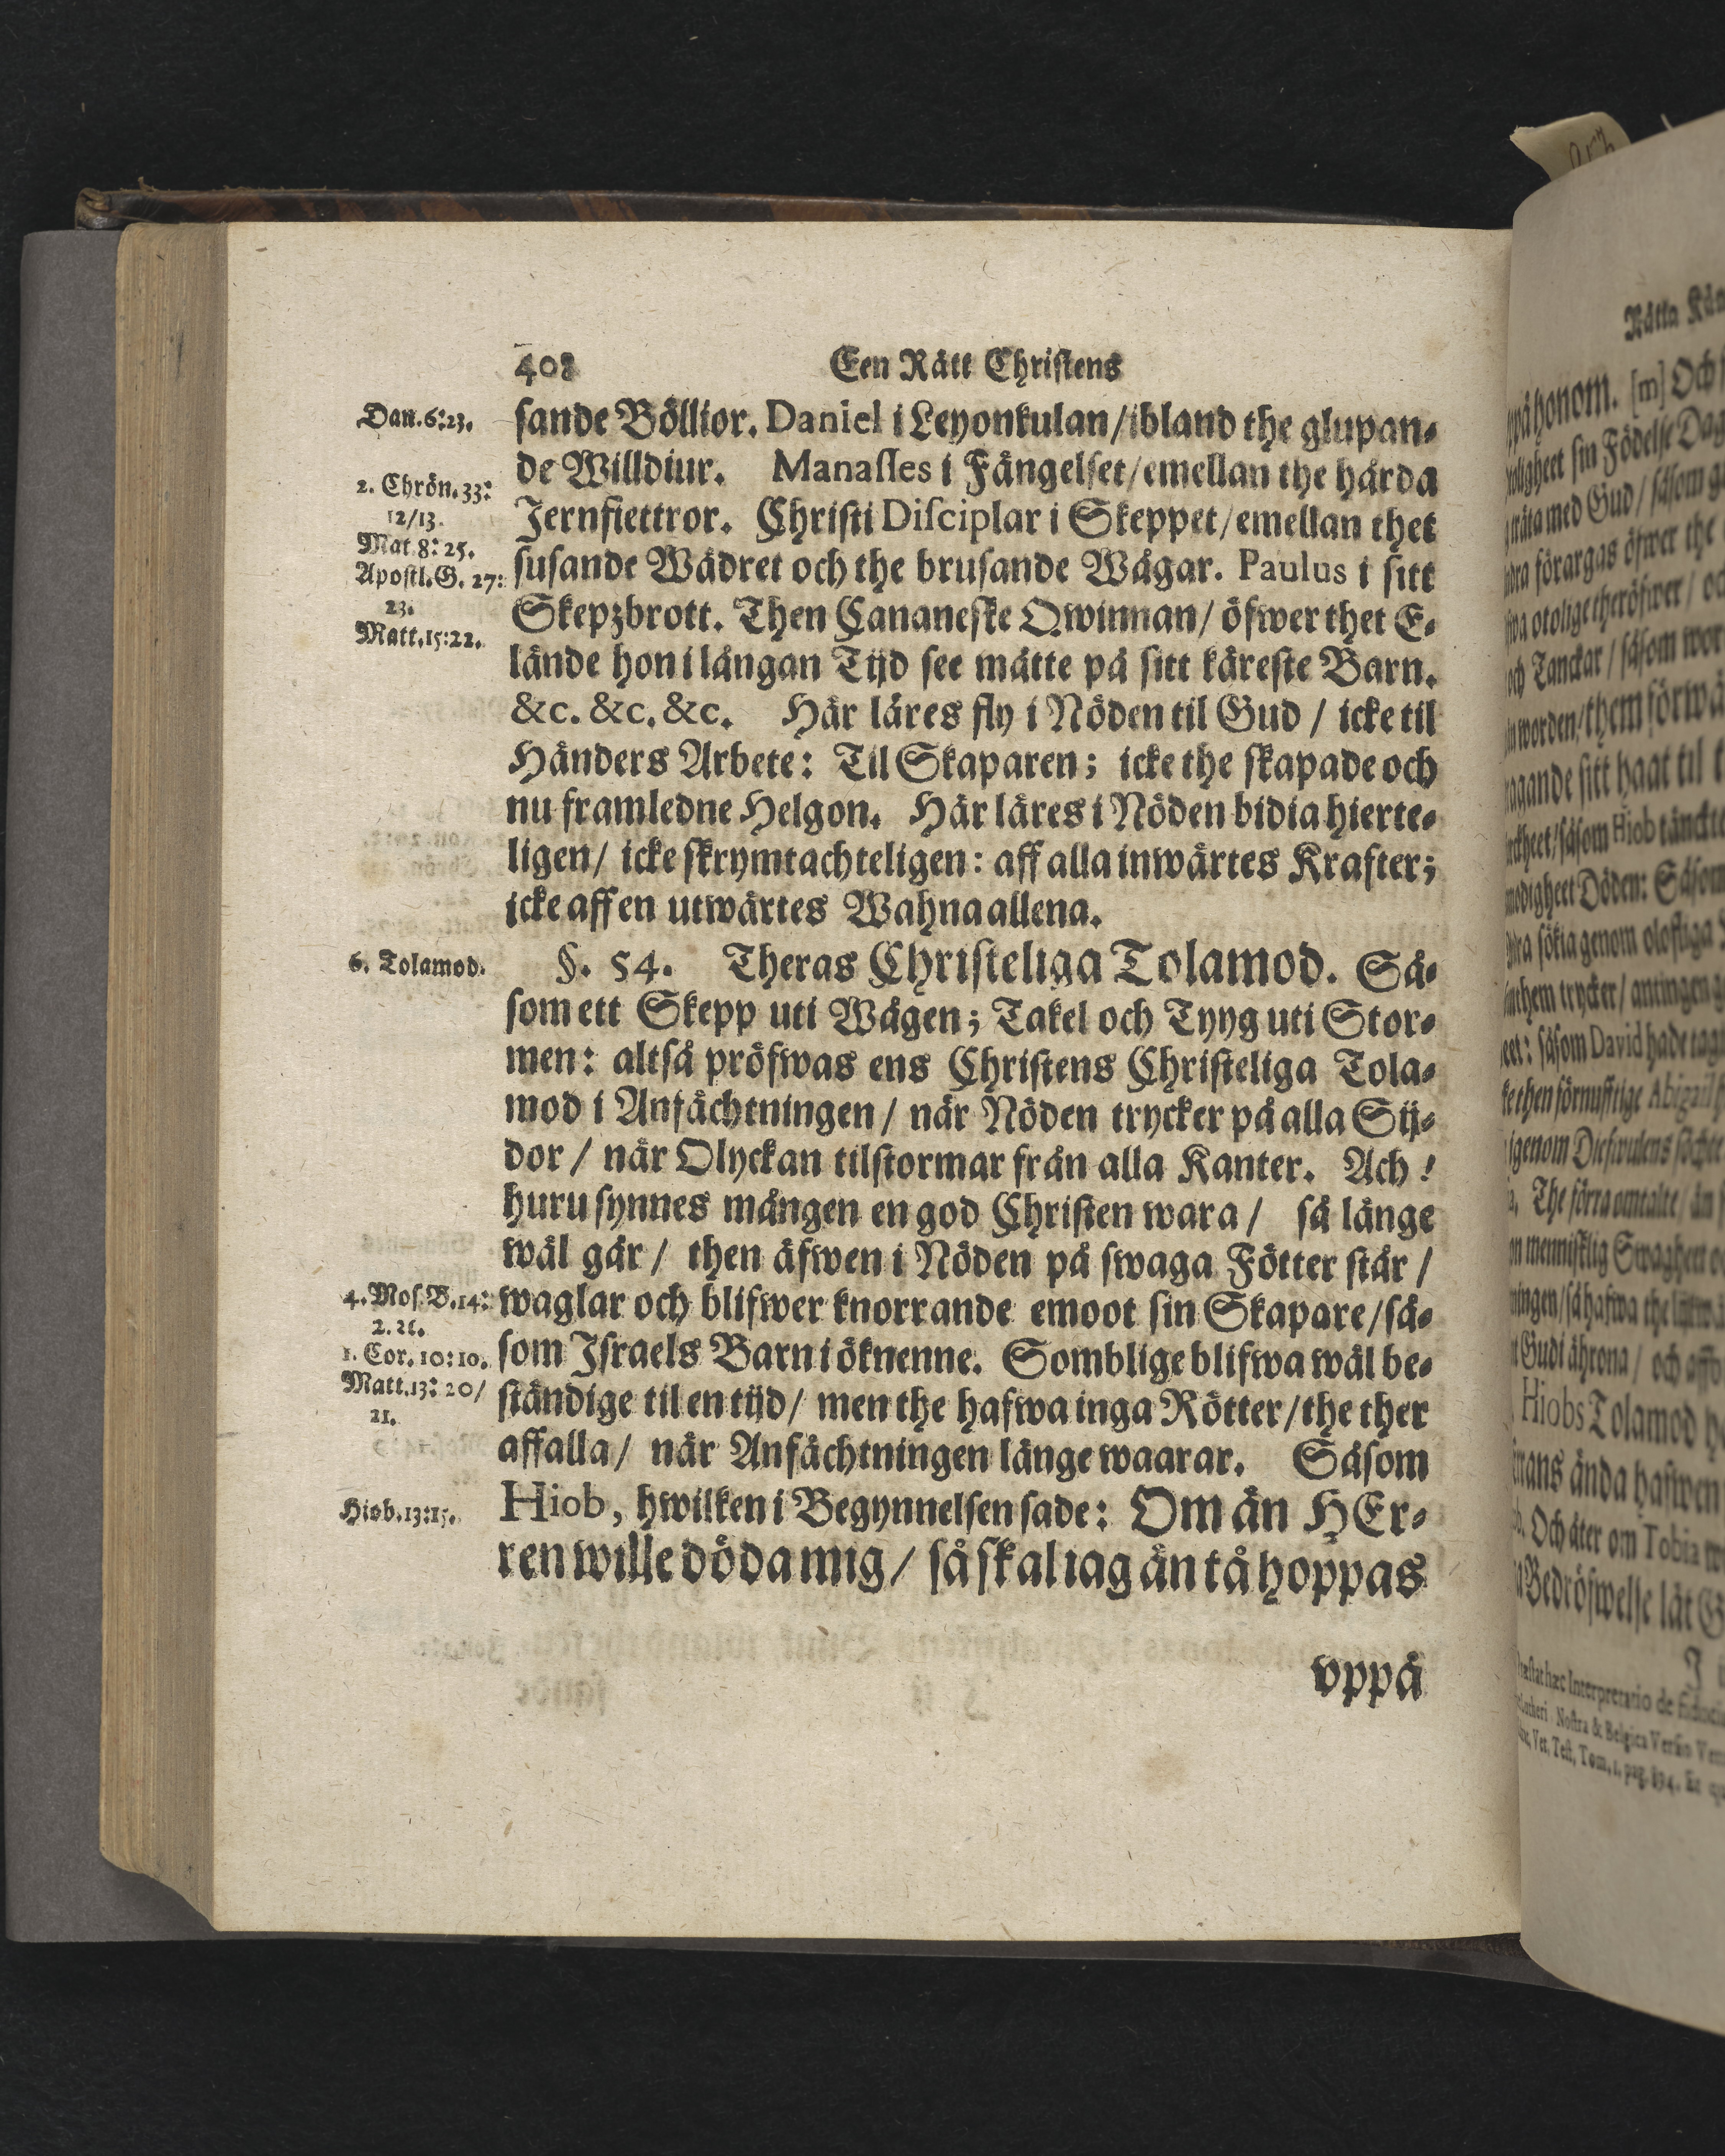 408 Een Rätt Christens
Dan. 6:23.
sande Böllior. Daniel i Leyonkulan/ ibland the glupan-
de Willdiur. Manasses i Fängelset/ emellan the hårda
2. Chrön. 33:
12/13.
Jernfiettror. Christi Disciplar i Skeppet/ emellan thet
Mat. 8: 25.
Apostl. G. 27:
23.
susande Wädret och the brusande Wågar. Paulus i sitt
Skepzbrott. Then Cananeske Qwinnan/ öfwer thet E-
Matt. 15:22.
lände hon i långan Tijd see mätte på sitt käreste Barn.
&c. &c. &c. Här läres fly i Nöden til Gud / icke til
Händers Arbete: Til Skaparen; icke the skapade och
nu framledne Helgon. Här läres i Nöden bidia hierte-
ligen/ icke skrymtachteligen: aff alla inwärtes Krafter;
icke aff en utwärtes Wahna allena.
6. Tolamod.
§. 54. Theras Christeliga Tolamod. Så-
som ett Skepp uti Wågen; Takel och Tyyg uti Stor-
men: altså pröfwas ens Christens Christeliga Tola-
mod i Anfächtningen/ när Nöden trycker på alla Sij-
dor / när Olyckan tilstormar från alla Kanter. Ach!
huru synnes mången en god Christen wara / så länge
wäl går / then äfwen i Nöden på swaga Fötter står /
4. Mos. B. 14:
2. 26.
waglar och blifwer knorrande emoot sin Skapare/ så-
1. Cor. 10:10.
som Israels Barn i öknenne. Somblige blifwa wäl be-
Matt. 13: 20/
21.
ständige til en tijd/ men the hafwa inga Rötter/ the ther
affalla/ när Anfächtningen länge waarar. Såsom
Hiob. 13:15.
Hiob, hwilken i Begynnelsen sade: Om än HEr-
ren wille döda mig/ så skal iag än tå hoppas
vppå